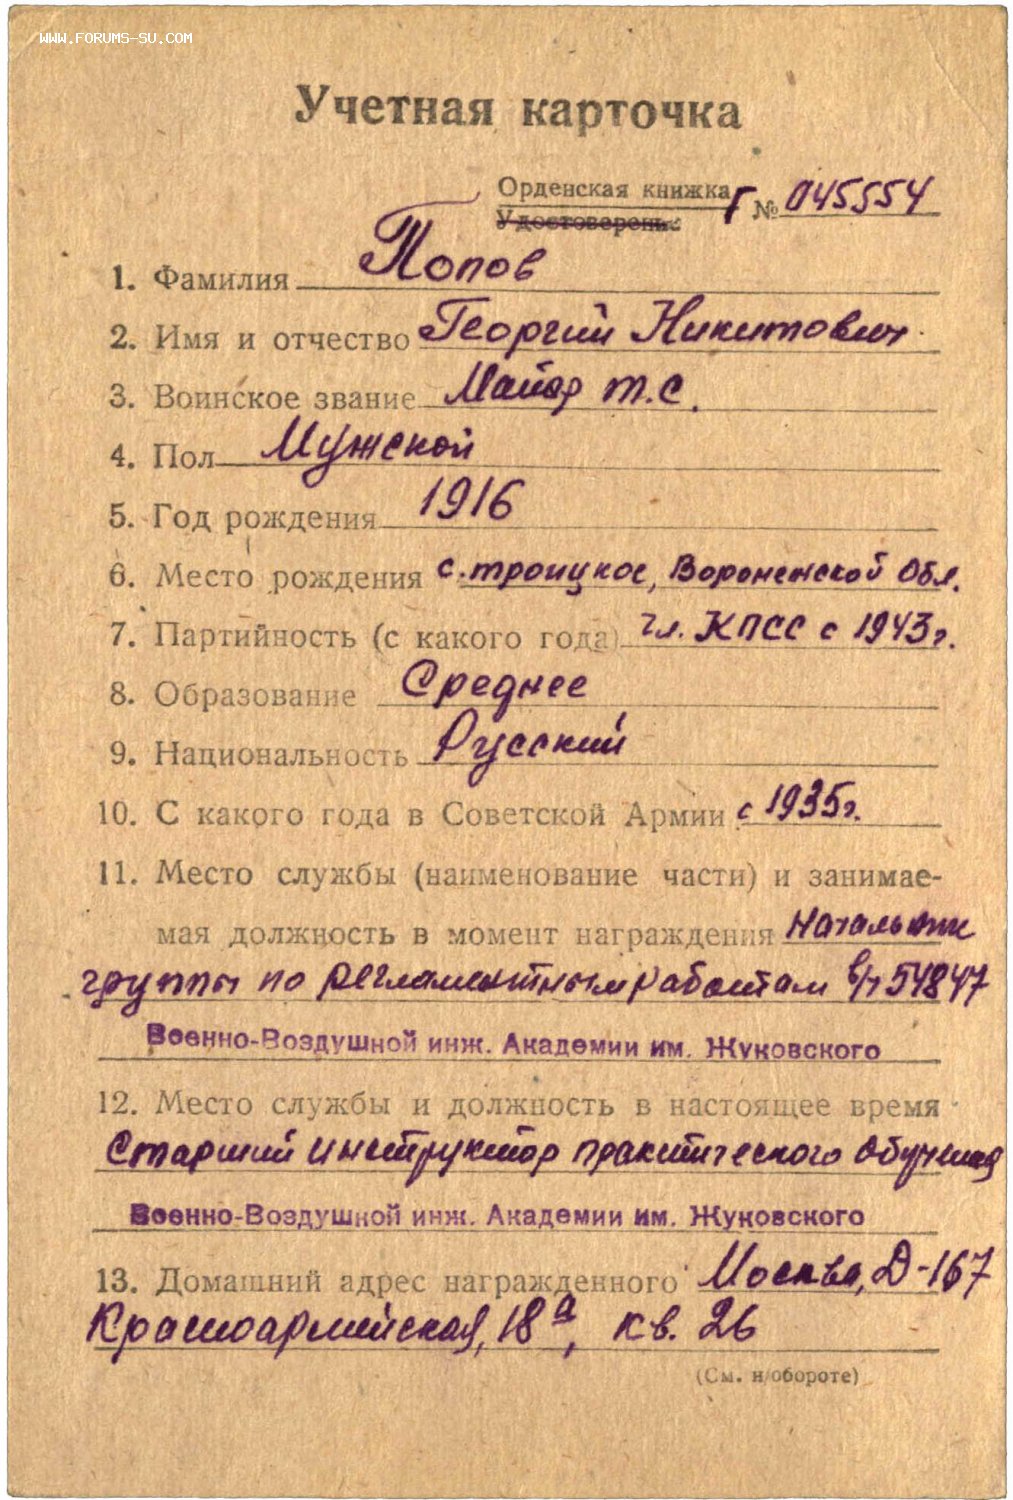 WWW.FORUMS-SU.COM
Учетная карточка
Орденская книжка Г № 045554
Удостоверение
1. Фамилия Попов
2. Имя и отчество Георгий Никитович
3. Воинское звание Майор т.с.
4. Пол Мужской
5. Год рождения 1916
6. Место рождения с. Троицкое, Воронежской Обл.
7. Партийность (с какого года) чл. КПСС с 1943 г.
8. Образование Среднее
9. Национальность Русский
10. С какого года в Советской Армии с 1935 г.
11. Место службы (наименование части) и занимае-
мая должность в момент награждения Начальник
группы по регламентным работам в/ч 54847
Военно-Воздушной инж. Академии им. Жуковского
12. Место службы и должность в настоящее время
Старший инструктор практического обучения
Военно-Воздушной инж. Академии им. Жуковского
13. Домашний адрес награжденного Москва, Д-167
Красноармейская, 18а, кв. 26
(См. на обороте)